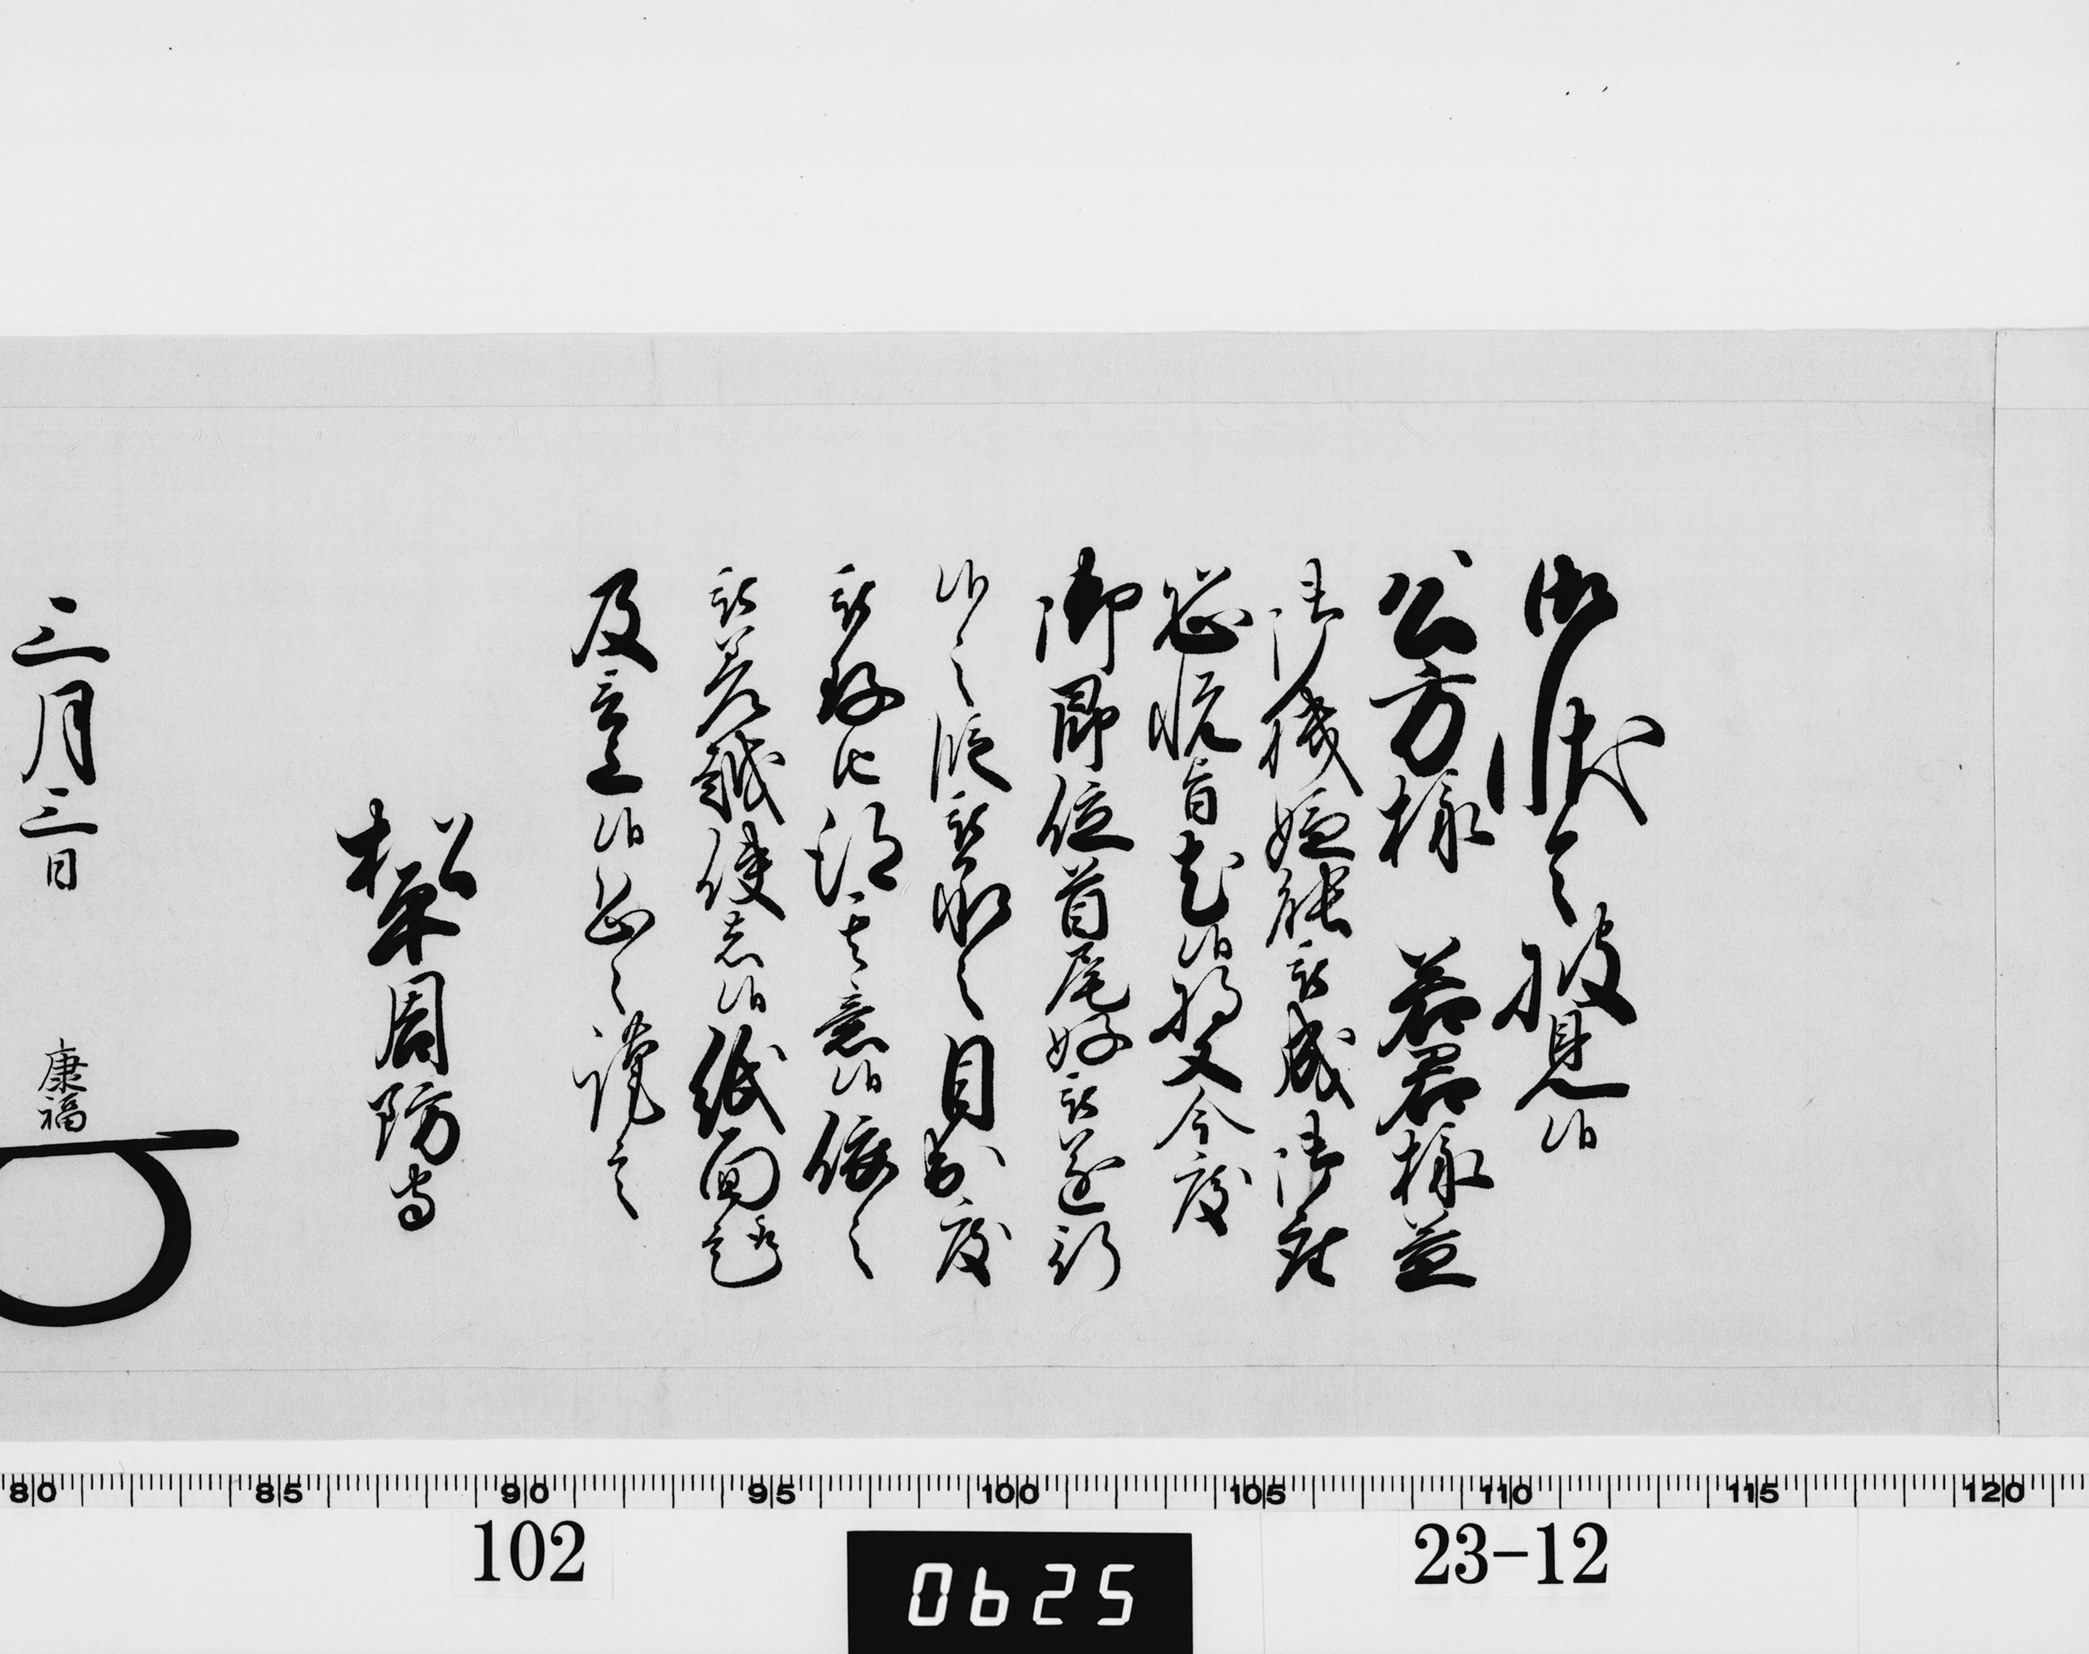 御状令披見候
公方様 若君様益
御機嫌能被成御座
恐悦旨尤候将又今度
御即位首尾好被遂行
候之段被承之目出度
被存此許其意候依之
被差越使者候紙面趣
及言上候処之謹言
松平周防守
三月三日 康福
80 85 90 95 100 105 110 115 120
102
23-12
0625